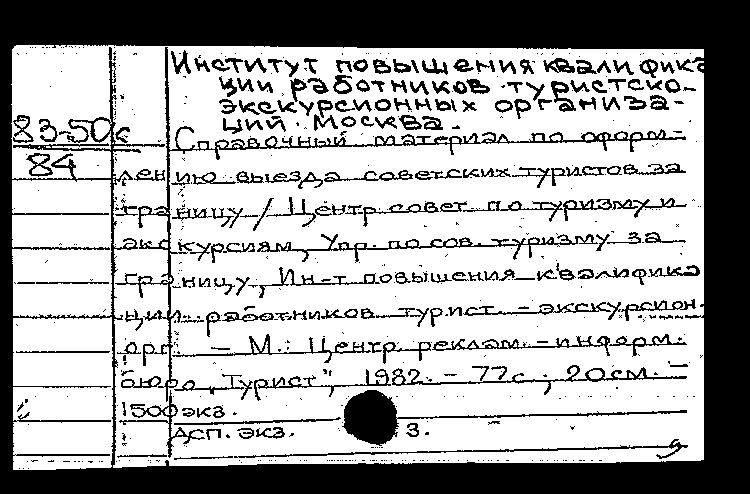 Институт повышения квалифика
ции работников туристско-
экскурсионных организа-
ций. Москва.
83-50к
84
Справочный материал по оформ-
лению выезда советских туристов за
границу / Центр. совет по туризму и
экскурсиям, Упр. по сов. туризму за
границу, Ин-т повышения квалифика
ции работников турист.-экскурсион.
орг. - М.: Центр. реклам.-информ.
бюро "Турист", 1982. - 77с.; 20см. -
1500экз.
Асп. экз. 3.